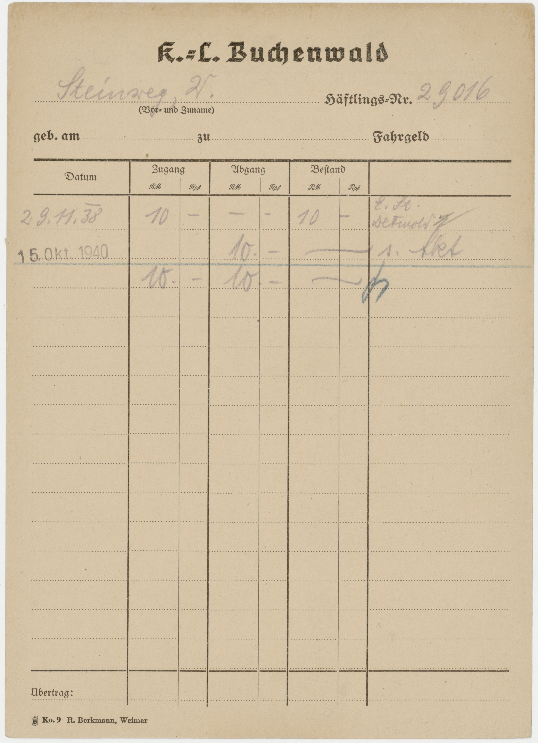 K.=L. Buchenwald
Steinweg, W. Häftlings-Nr. 29016
(Vor- und Zuname)
geb. am zu Fahrgeld
Datum Zugang Abgang Bestand
RM Rpf RM Rpf RM Rpf
29.11.38 10 - - - 10 -
Detmold
15. Okt. 1940 10. - — s. Akt
10. - 10. - —
Übertrag:
Ko. 9 R. Borkmann, Weimar